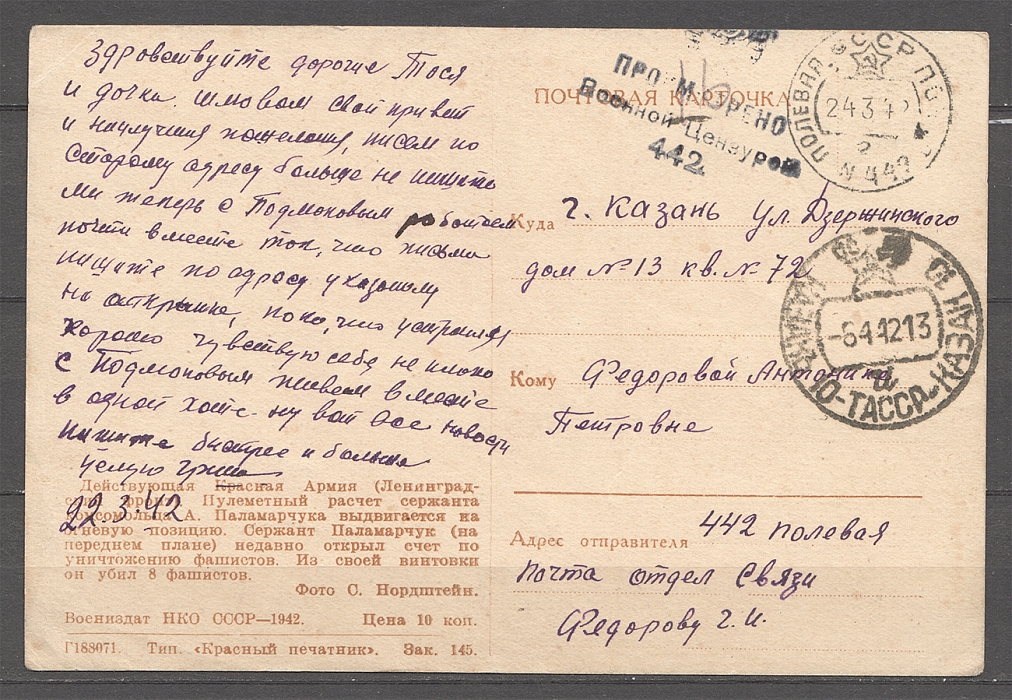 Здровствуйте дорогие Тося
и дочка. шлю вам свой привет
и наилучшия пожелания, писем по
старому адресу больше не пишите
ми теперь с Подмоковым роботаем
почти вместе ток, что письма
пишите по адресу указаному
на открытке, пока, что устроился
хорошо чувствую себе не плохо
с Подмоковым живем вместе
в одной хате. ну вот все новости
пишите быстрее и больше
целую Гриша
22.3.42
Действующая Красная Армия (Ленинград-
ский фронт). Пулеметный расчет сержанта
комсомольца А. Паламарчука выдвигается на
огневую позицию. Сержант Паламарчук (на
переднем плане) недавно открыл счет по
уничтожению фашистов. Из своей винтовки
он убил 8 фашистов.
Фото С. Нордштейн.
Воениздат НКО СССР—1942. Цена 10 коп.
Г188071. Тип. «Красный печатник». Зак. 145.
ПОЧТОВАЯ КАРТОЧКА
ПРОСМОТРЕНО
Военной Цензурой
442
СССР
ПОЛЕВАЯ ПОЧТА
24 3 42
N 442
Куда г. Казань ул. Дзержинского
дом № 13 кв. № 72
КАЗАНЬ
-6 4 42 13
ТАССР-КАЗАН
Кому Федоровой Антонине
Петровне
Адрес отправителя 442 полевая
почта отдел Связи
Федорову Г. И.